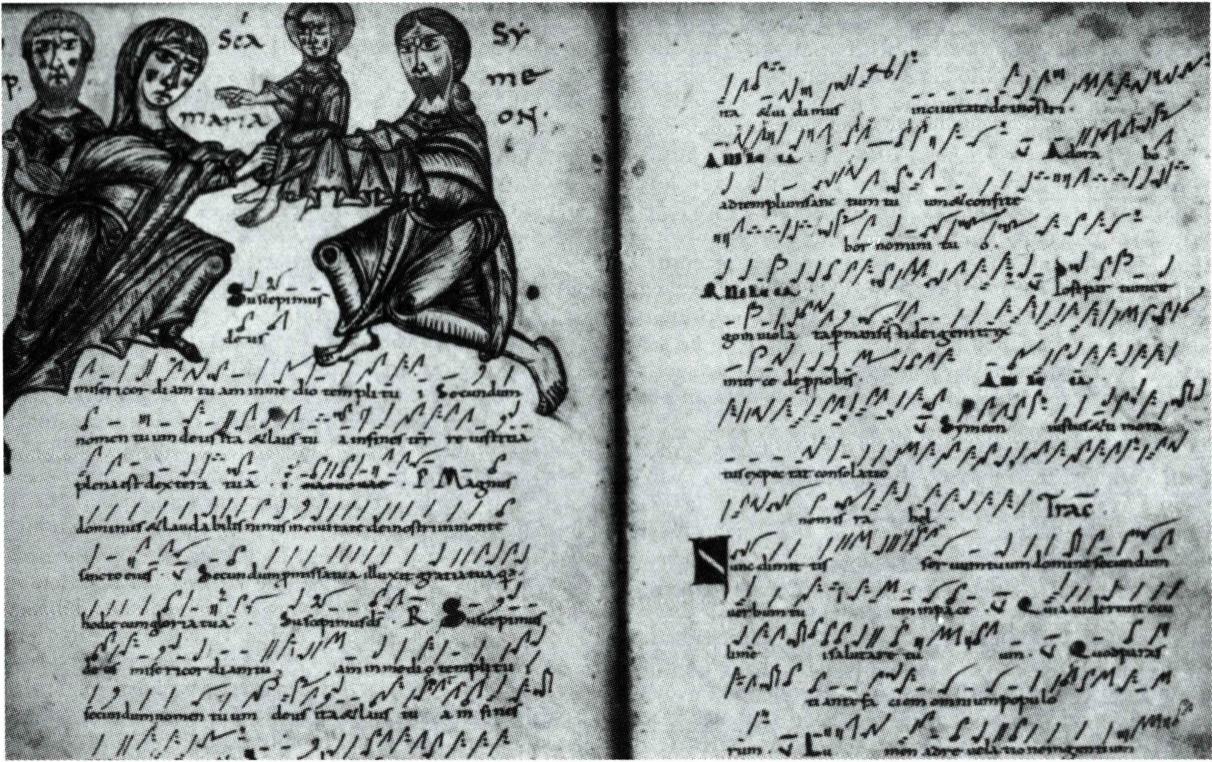 P.
Sca
maria
Sy
me
on.
Suscepimus
deus
misericor di am tu am in me dio templi tu i Secundum
nomen tu um deus ita & laus tu a in fines ter re iustitia
plena est dextera tua P Magnus
dominus & laudabilis nimis in civitate dei nostri in monte
sancto eius. V Secundum tua illuxit gratia tua
hodie cum gloria tua Suscepimus ds. R Suscepimus
deus misericor diam tu am in medi o templi tu
secundum nomen tu um deus ita & laus tu a in fines
ita & vi di mus in civitate dei nostri.
Alleluia. V Adora bo
ad templum sanc tum tu um & confite
bor nomini tu o.
Alleluia. V Post partum vir
go inviola ta permansisti dei genitrix
inter ce de pro nobis. Alleluia.
V Symeon iustus & ti mora
tus expec tat consolatio
nem is ra hel. Trac
Nunc dimit tis ser uum tuum domine secundum
uerbum tu um in pace. V Quia uiderunt ocu
li me i salutare tu um. V Quod paras
ti ante fa ciem omnium popu lo
rum. V Lu men ad re uela tionem gentium